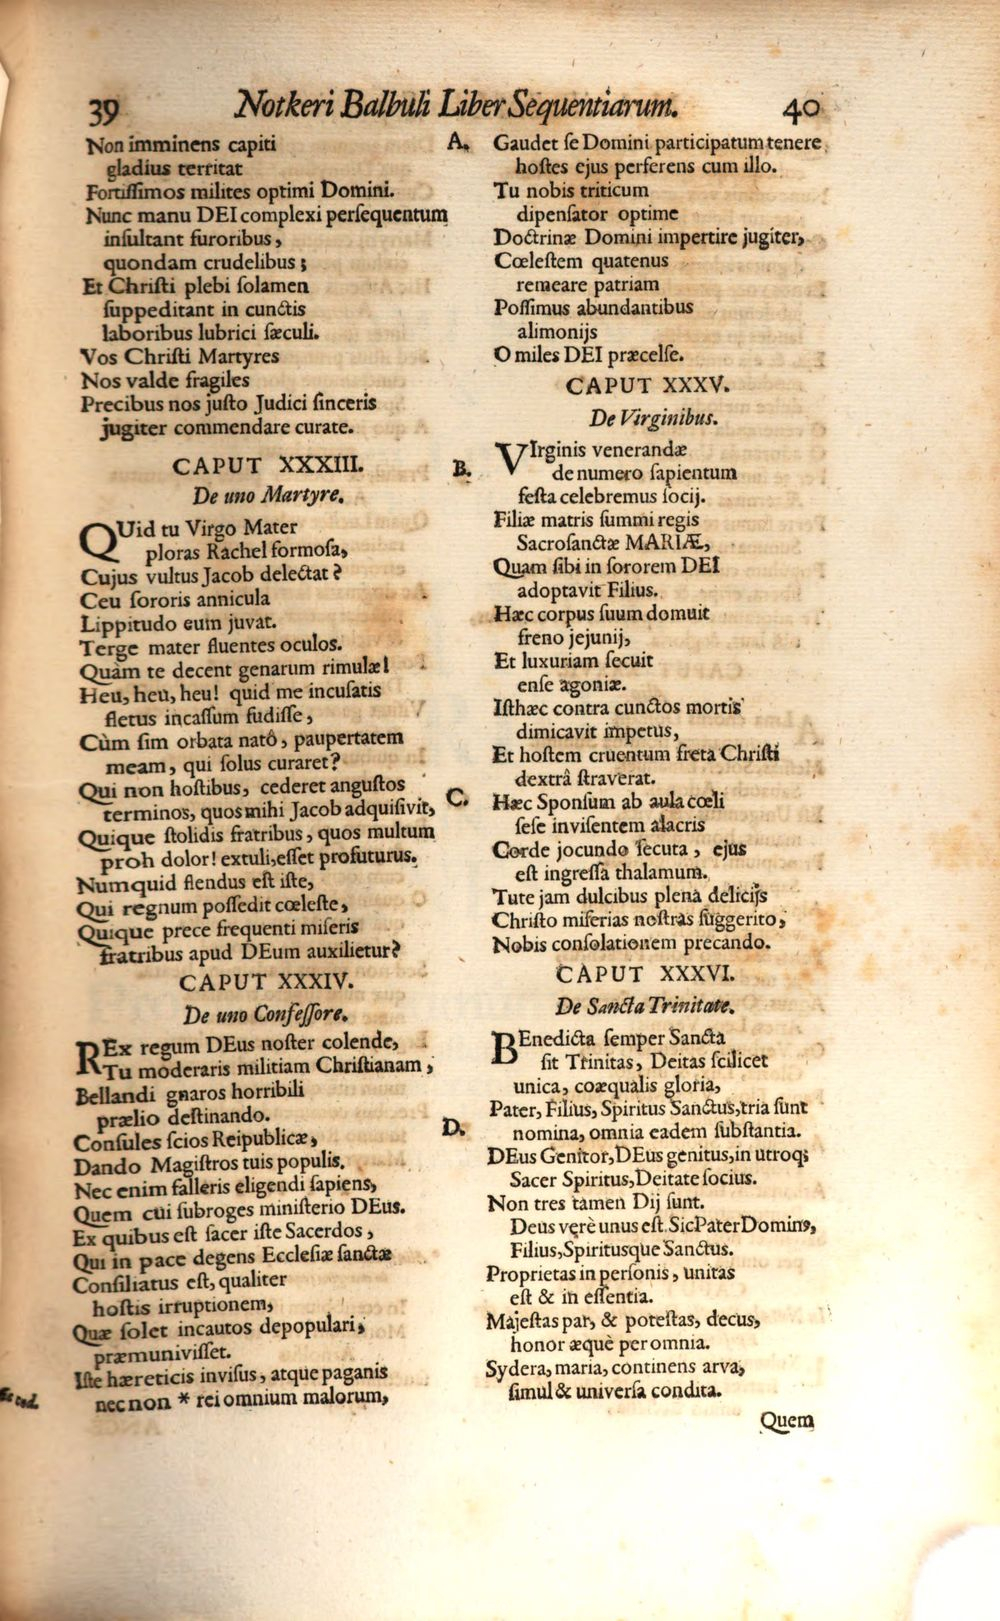 39 Notkeri Balbuli Liber Sequentiarum. 40
Non imminens capiti
gladius territat
Fortiſſimos milites optimi Domini.
Nunc manu DEI complexi perſequentum
inſultant furoribus,
quondam crudelibus;
Et Chriſti plebi ſolamen
ſuppeditant in cunctis
laboribus lubrici ſæculi.
Vos Chriſti Martyres
Nos valde fragiles
Precibus nos juſto Judici ſinceris
jugiter commendare curate.
CAPUT XXXIII.
De uno Martyre.
QUid tu Virgo Mater
ploras Rachel formoſa,
Cujus vultus Jacob delectat?
Ceu ſororis annicula
Lippitudo eum juvat.
Terge mater fluentes oculos.
Quàm te decent genarum rimulæ!
Heu, heu, heu! quid me incuſatis
fletus incaſſum fudiſſe,
Cùm ſim orbata natô, paupertatem
meam, qui ſolus curaret?
Qui non hoſtibus, cederet anguſtos
terminos, quos mihi Jacob adquiſivit,
Quique ſtolidis fratribus, quos multum
proh dolor! extuli, eſſet profuturus.
Numquid flendus eſt iſte,
Qui regnum poſſedit cœleſte,
Quique prece frequenti miſeris
fratribus apud DEum auxilietur?
CAPUT XXXIV.
De uno Confeſſore.
REx regum DEus noſter colende,
Tu moderaris militiam Chriſtianam,
Bellandi gnaros horribili
prælio deſtinando.
Conſules ſcios Reipublicæ,
Dando Magiſtros tuis populis.
Nec enim falleris eligendi ſapiens,
Quem cui ſubroges miniſterio DEus.
Ex quibus eſt ſacer iſte Sacerdos,
Qui in pace degens Eccleſiæ ſanctæ
Conſiliatus eſt, qualiter
hoſtis irruptionem,
Quæ ſolet incautos depopulari,
præmuniviſſet.
Iſte hæreticis inviſus, atque paganis
nec non * rei omnium malorum,
A.
B.
C.
D.
Gaudet ſe Domini participatum tenere
hoſtes ejus perferens cum illo.
Tu nobis triticum
dipenſator optime
Doctrinæ Domini impertire jugiter,
Cœleſtem quatenus
remeare patriam
Poſſimus abundantibus
alimonijs
O miles DEI præcelſe.
CAPUT XXXV.
De Virginibus.
VIrginis venerandæ
de numero ſapientum
feſta celebremus ſocij.
Filiæ matris ſummi regis
Sacroſanctæ MARIÆ,
Quam ſibi in ſororem DEI
adoptavit Filius.
Hæc corpus ſuum domuit
freno jejunij,
Et luxuriam ſecuit
enſe agoniæ.
Iſthæc contra cunctos mortis
dimicavit impetus,
Et hoſtem cruentum freta Chriſti
dextrâ ſtraverat.
Hæc Sponſum ab aula cœli
ſeſe inviſentem alacris
Corde jocundo ſecuta, ejus
eſt ingreſſa thalamum.
Tute jam dulcibus plena delicijs
Chriſto miſerias noſtras ſuggerito,
Nobis conſolationem precando.
CAPUT XXXVI.
De Sancta Trinitate.
BEnedicta ſemper Sancta
ſit Trinitas, Deitas ſcilicet
unica, coæqualis gloria,
Pater, Filius, Spiritus Sanctus, tria ſunt
nomina, omnia eadem ſubſtantia.
DEus Genitor, DEus genitus, in utroq;
Sacer Spiritus, Deitate ſocius.
Non tres tamen Dij ſunt.
Deus verè unus eſt. Sic Pater Dominꝰ,
Filius, Spirituſque Sanctus.
Proprietas in perſonis, unitas
eſt & in eſſentia.
Majeſtas par, & poteſtas, decus,
honor æquè per omnia.
Sydera, maria, continens arva,
ſimul & univerſa condita.
Quem